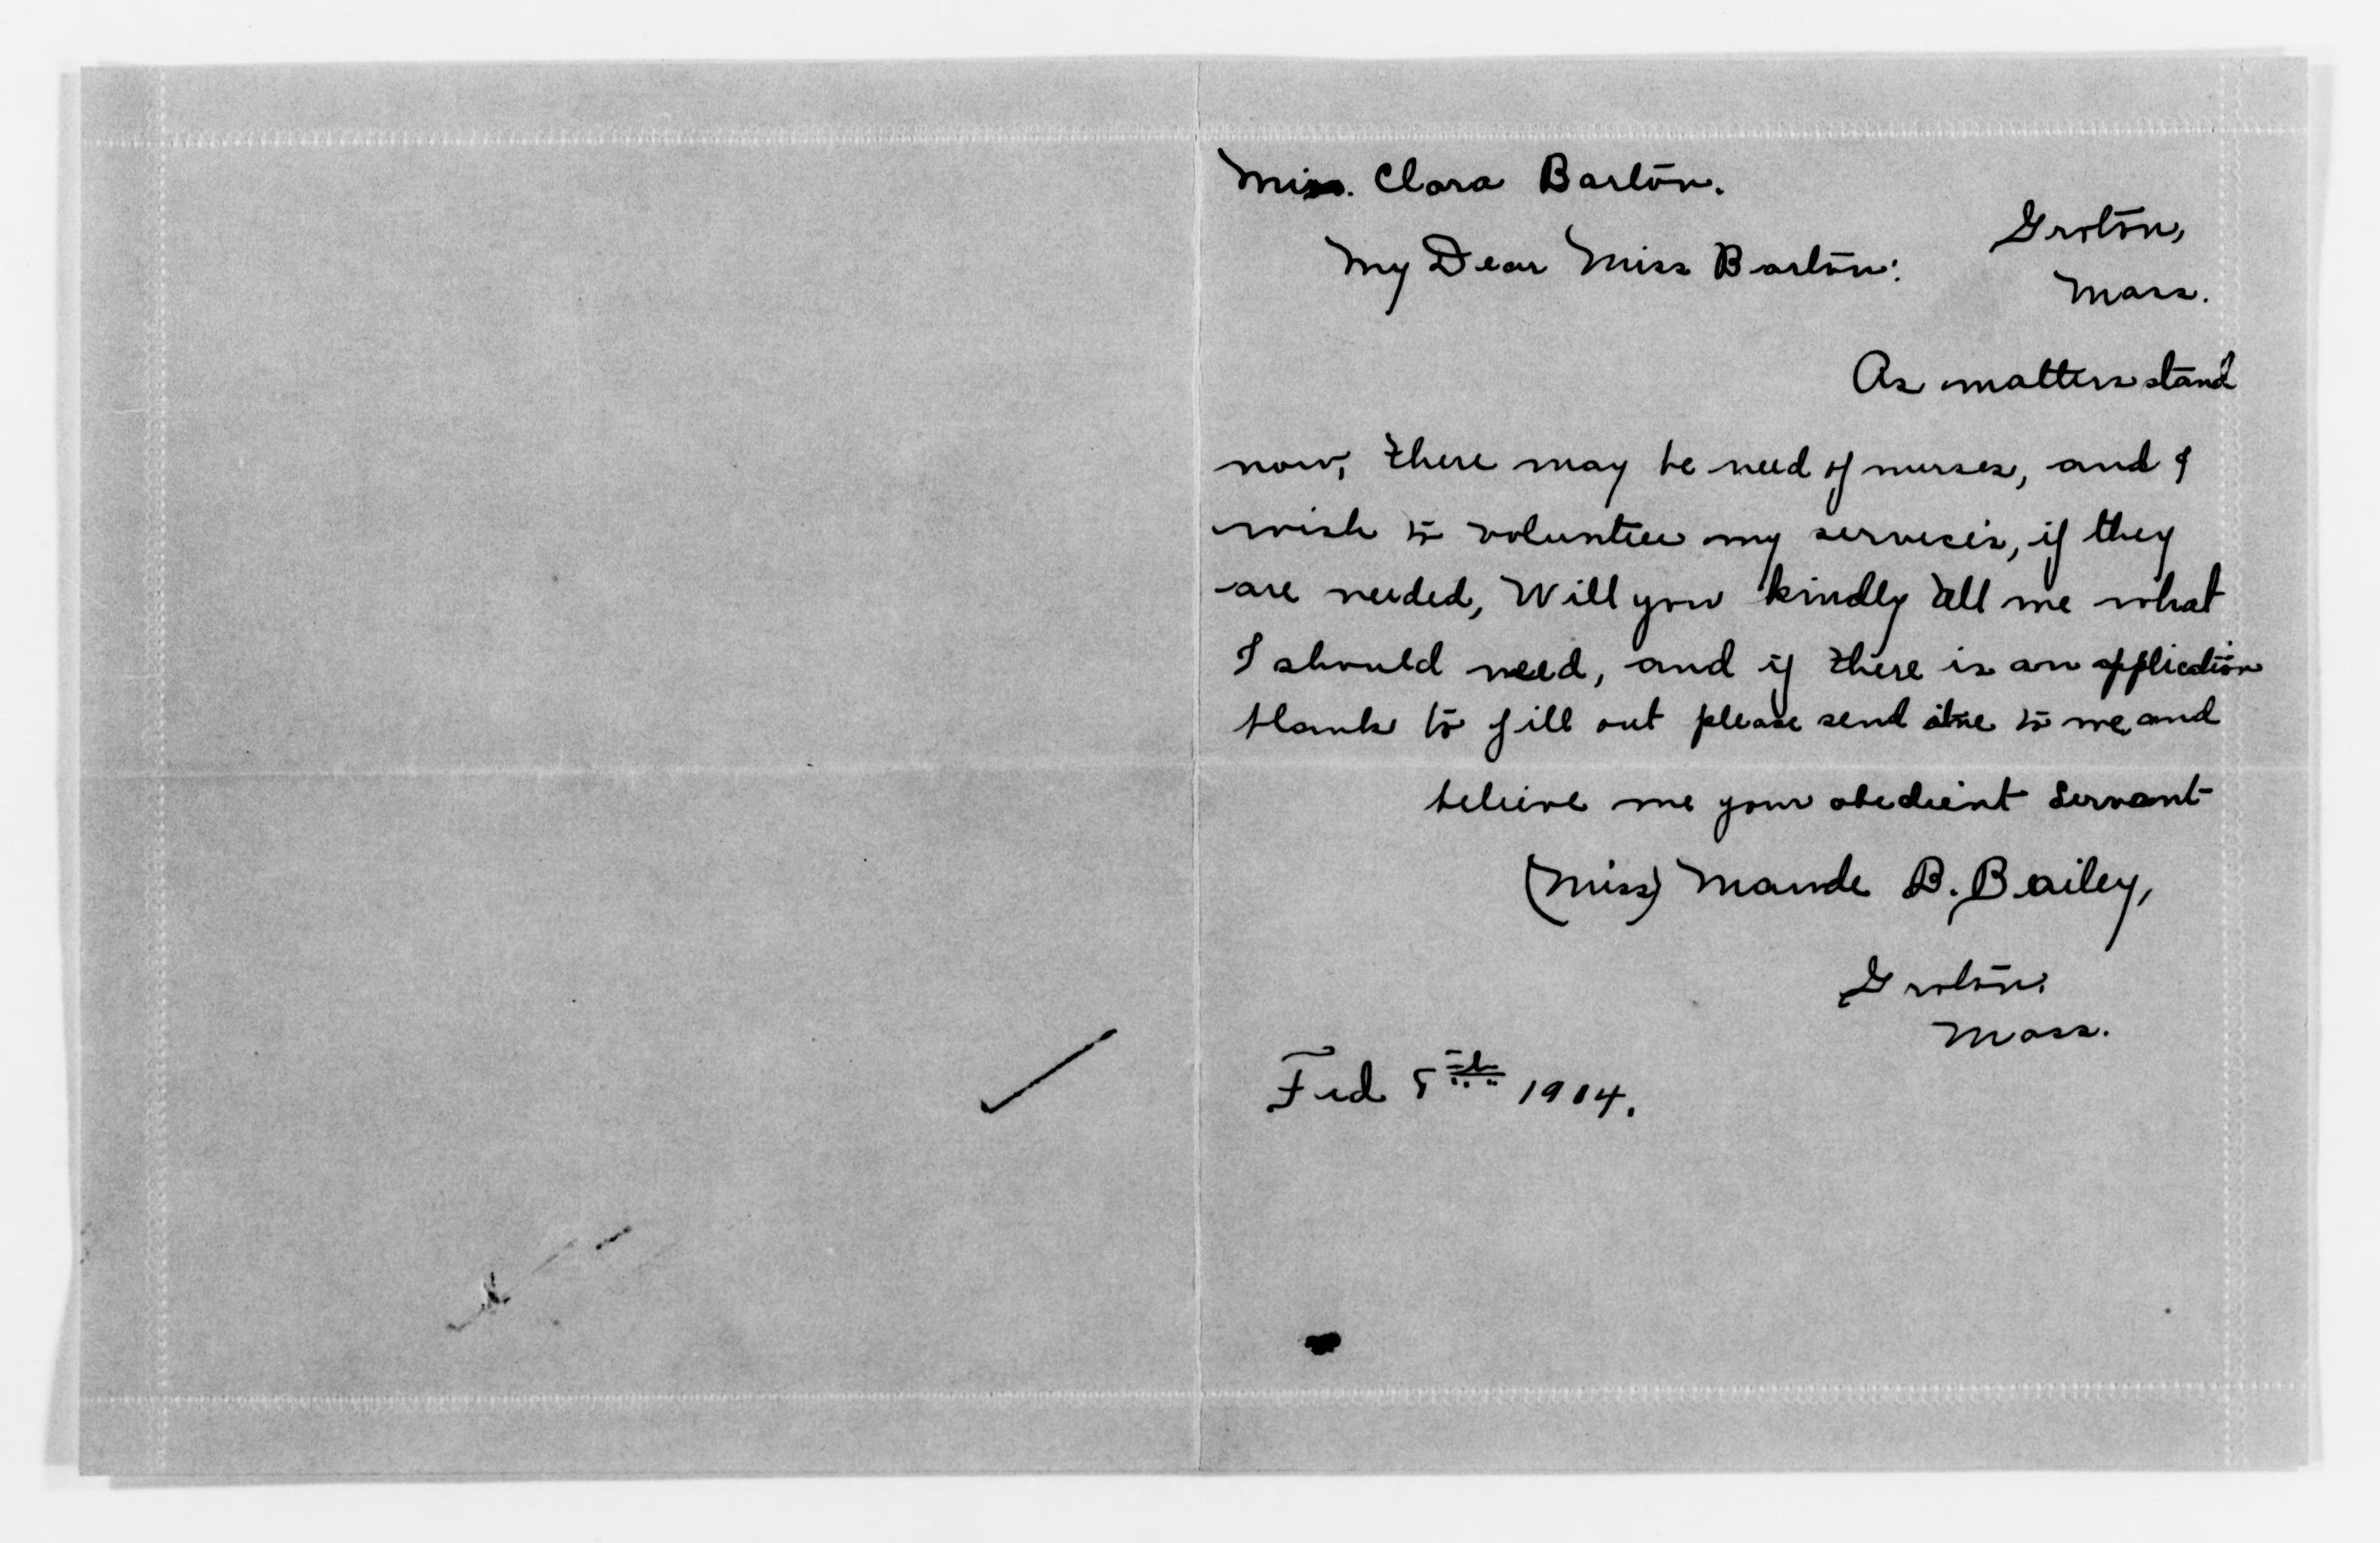 Miss. Clara Barton.
Groton,
My Dear Miss Barton:
Mass.
As matters stand
now, there may be need of nurses, and I
wish to volunteer my services, if they
are needed, Will you kindly tell me what
I should need, and if there is an application
blank to fill out please send one to me, and
believe me your obedient servant
(Miss) Maude B. Bailey,
Groton.
Mass.
Feb 5th 1904.